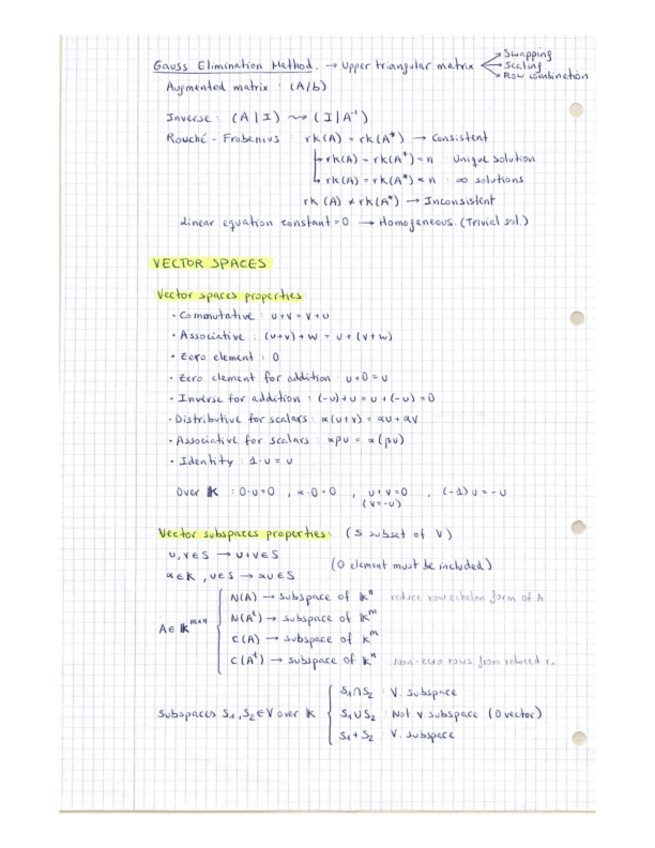 Gauss Elimination Method. → Upper triangular matrix
Swapping
Scaling
Row combination
Augmented matrix : (A/b)
Inverse : (A | I) ⇝ (I | A⁻¹)
Rouché - Frobenius : rk(A) = rk(A*) → Consistent
↳ rk(A) = rk(A*) = n : Unique solution
↳ rk(A) = rk(A*) < n : ∞ solutions
rk (A) ≠ rk(A*) → Inconsistent
Linear equation constant = 0 → Homogeneous. (Trivial sol.)
VECTOR SPACES
Vector spaces properties:
· Commutative : u+v = v+u
· Associative : (u+v)+w = u+(v+w)
· Zero element : 0
· Zero element for addition : u+0 = u
· Inverse for addition : (-u)+u = u+(-u) = 0
· Distributive for scalars : α(u+v) = αu+αv
· Associative for scalars : αβu = α(βu)
· Identity : 1·u = u
Over K : 0·u=0 , α·0=0 , u+v=0 , (-1)u=-u
(v=-u)
Vector subspaces properties: (S subset of V)
u,v∈S → u+v∈S
(0 element must be included)
α∈K , u∈S → αu∈S
A∈ Kᵐˣⁿ
N(A) → subspace of Kⁿ reduce row echelon form of A
N(Aᵗ) → subspace of Kᵐ
C(A) → subspace of Kᵐ
C(Aᵗ) → subspace of Kⁿ Non-zero rows from reduced r.
Subspaces S₁,S₂∈V over K
S₁∩S₂ : V. subspace
S₁∪S₂ : Not v. subspace (0 vector)
S₁+S₂ : V. subspace